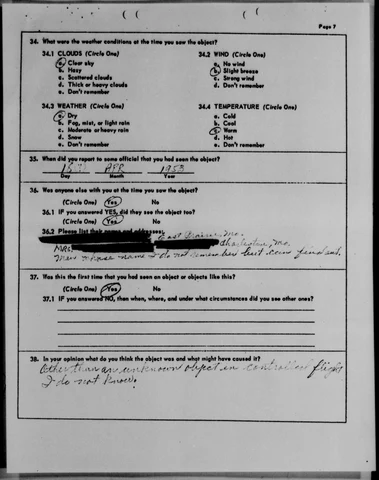 Page 7
34. What were the weather conditions at the time you saw the object?
34.1 CLOUDS (Circle One) 34.2 WIND (Circle One)
a. Clear sky a. No wind
b. Hazy b. Slight breeze
c. Scattered clouds c. Strong wind
d. Thick or heavy clouds d. Don't remember
e. Don't remember
34.3 WEATHER (Circle One) 34.4 TEMPERATURE (Circle One)
a. Dry a. Cold
b. Fog, mist, or light rain b. Cool
c. Moderate or heavy rain c. Warm
d. Snow d. Hot
e. Don't remember e. Don't remember
35. When did you report to some official that you had seen the object?
APR 1953
Day Month Year
36. Was anyone else with you at the time you saw the object?
(Circle One) Yes No
36.1 IF you answered YES, did they see the object too?
(Circle One) Yes No
36.2 Please list their names and addresses:
East Prairie, Mo.
MRS. Charleston, Mo
Man whose name I do not remember but can find out.
37. Was this the first time that you had seen an object or objects like this?
(Circle One) Yes No
37.1 IF you answered NO, then when, where, and under what circumstances did you see other ones?
38. In your opinion what do you think the object was and what might have caused it?
Other than an unknown object in controlled flight
I do not know.